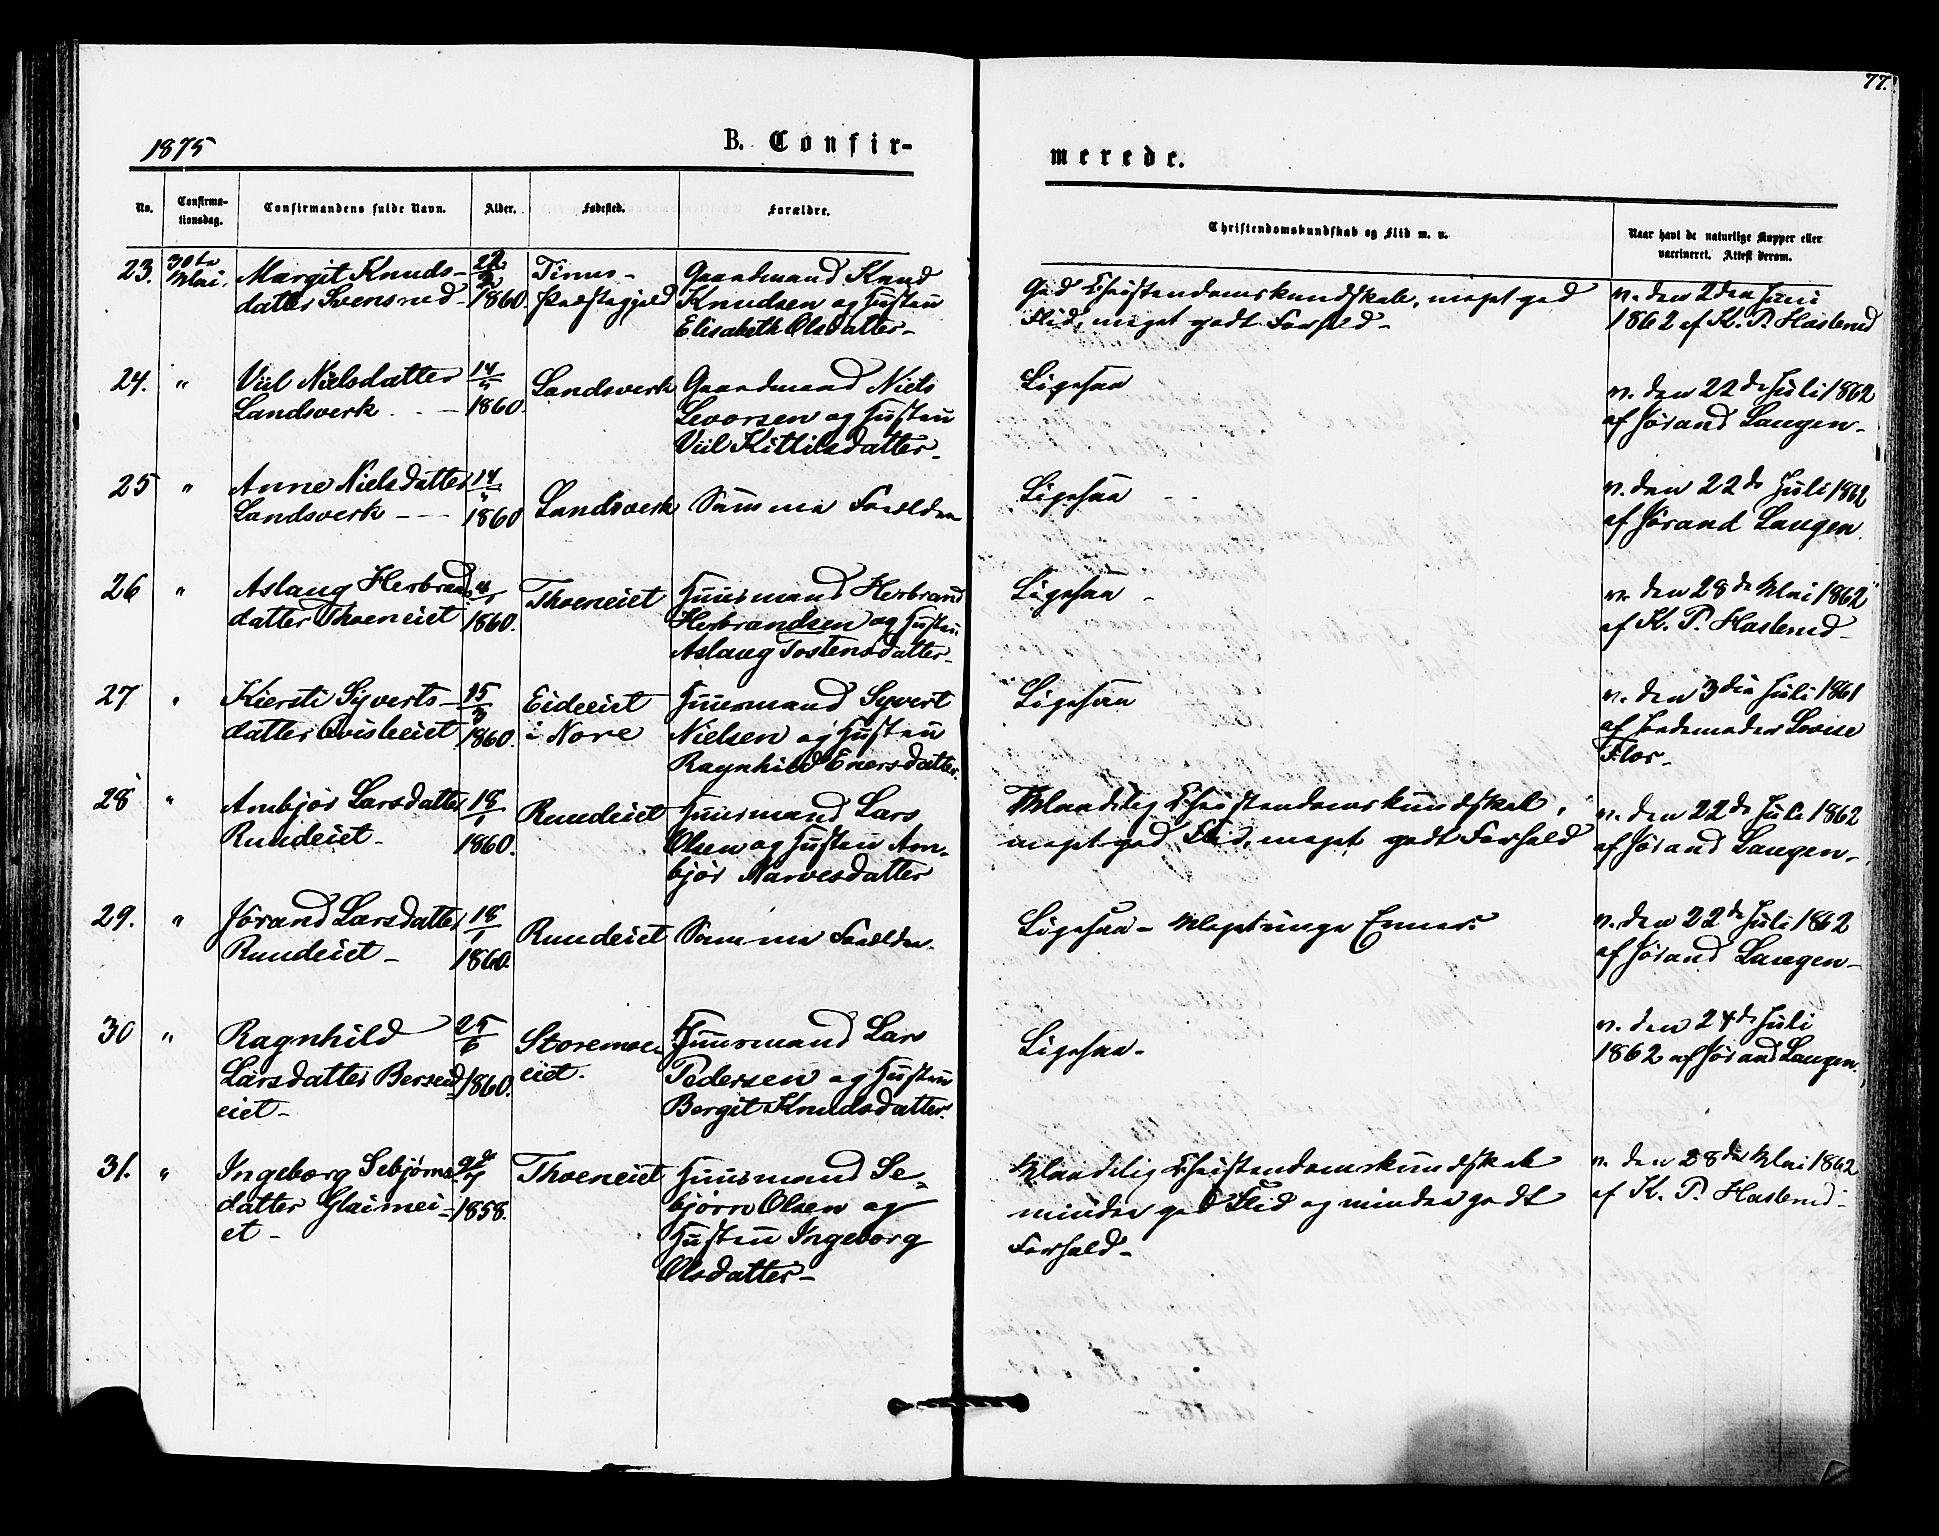 77.
1875
B. Confir-
merede.
No.
Confirma-
tionsdag.
Confirmandens fulde Navn.
Alder.
Fødested.
Forældre.
Christendomskundskab og Flid m. v.
Naar havt de naturlige Kopper eller
vaccineret. Attest derom.
23. 30te Mai. Margit Knuds- 1860. Tinns- Gaardmand Knud
datter Svensrud- Præstegjeld Knudsen og Hustru
Elisabeth Olsdatter-
God Christendomskundskab, meget god
Flid, meget godt Forhold-
v. den 2den Juni
1862 af K. P. Haslerud
24. " Viil Nielsdatter 14 Landsverk Gaardmand Niels
Landsverk - 1860. Levorsen og Hustru
Viil Kittilsdatter-
Ligesaa
v. den 22de Juli 1862
af Jørand Laugen-
25 " Anne Nielsdatter 14 Landsverk Samme Forældre
Landsverk - 1860
Ligesaa
v. den 22de Juli 1862
af Jørand Laugen.
26 " Aslaug Herbrands Thoeneiet Huusmand Herbrand
datter Thoeneiet 1860. Herbrandsen og Hustru
Aslaug Tostensdatter-
Ligesaa -
v. den 28de Mai 1862
af K. P. Haslerud-
27 " Kiersti Syverts- 25/3 Eideeiet Huusmand Syvert
datter Qvisleeiet 1860. i Nore Nielsen og Hustru
Ragnhild Enersdatter.
Ligesaa
v. den 3die Juli 1861
af Jordemoder Lovise
Flor-
28 " Ambjør Larsdatter 18/1 Rundeiet Huusmand Lars
Rundeiet- 1860. Olsen og Hustru Am-
bjør Narvesdatter
Maadelig Christendomskundskab,
meget god Flid, meget godt Forhold
v. den 22de Juli 1862
af Jørand Laugen-
29. " Jørand Larsdatter 18/1 Rundeiet Samme Forældre.
Rundeiet- 1860.
Ligesaa- Meget ringe Evner.
v. den 22de Juli 1862
af Jørand Laugen-
30 " Ragnhild 25/6 Storemoe- Huusmand Lars
Larsdatter Berserud 1860. eiet. Pedersen og Hustru
eiet- Bergit Knudsdatter.
Ligesaa-
v. den 24de Juli
1862 af Jørand Laugen.
31. " Ingeborg Sebjørns- Thoeneiet Huusmand Se-
datter Glaimei- 1858. bjørn Olsen og
et- Hustru Ingeborg
Olsdatter-
Maadelig Christendomskundskab
mindre god Flid og mindre godt
Forhold-
v. den 28de Mai 1862
af K. P. Haslerud-